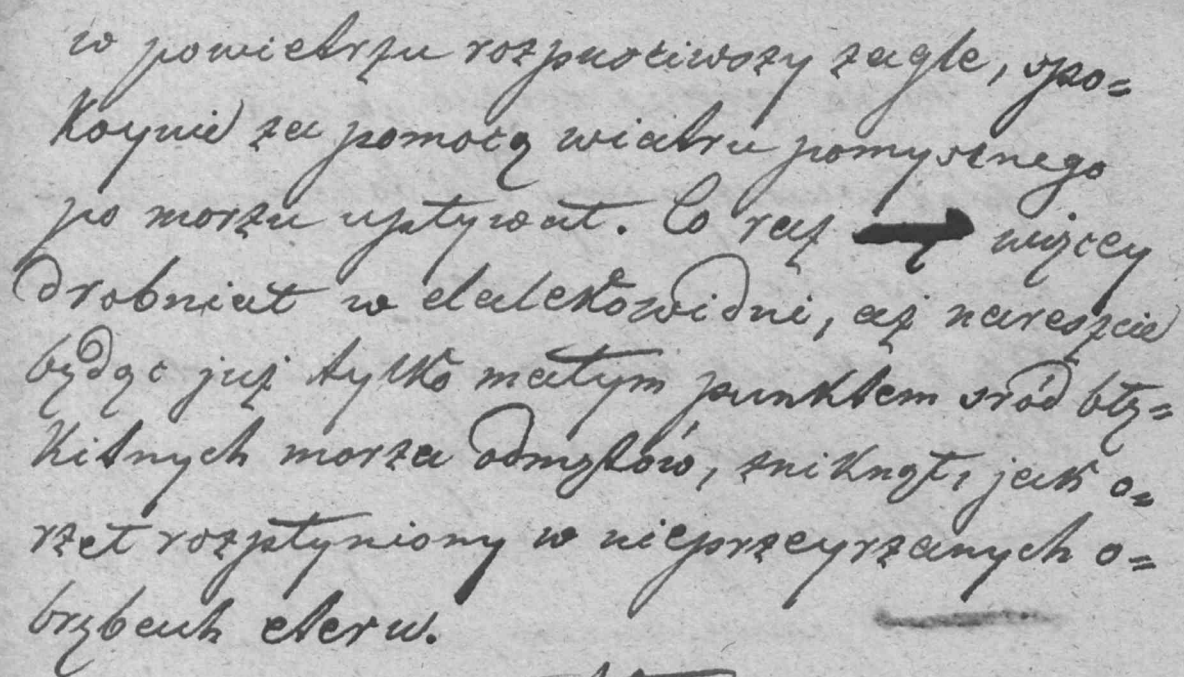 w powietrzu rozpuściwszy żagle, spo=
koynie za pomocą wiatru pomyślnego
po morzu upływał. Co raz więcey
drobniał w dalekowidni, aż nareszcie
będąc już tylko małym punktem śród błę=
kitnych morza odmętów, zniknął, jak o=
rzeł rozpłyniony w nieprzeyrzanych o=
brębach eteru.